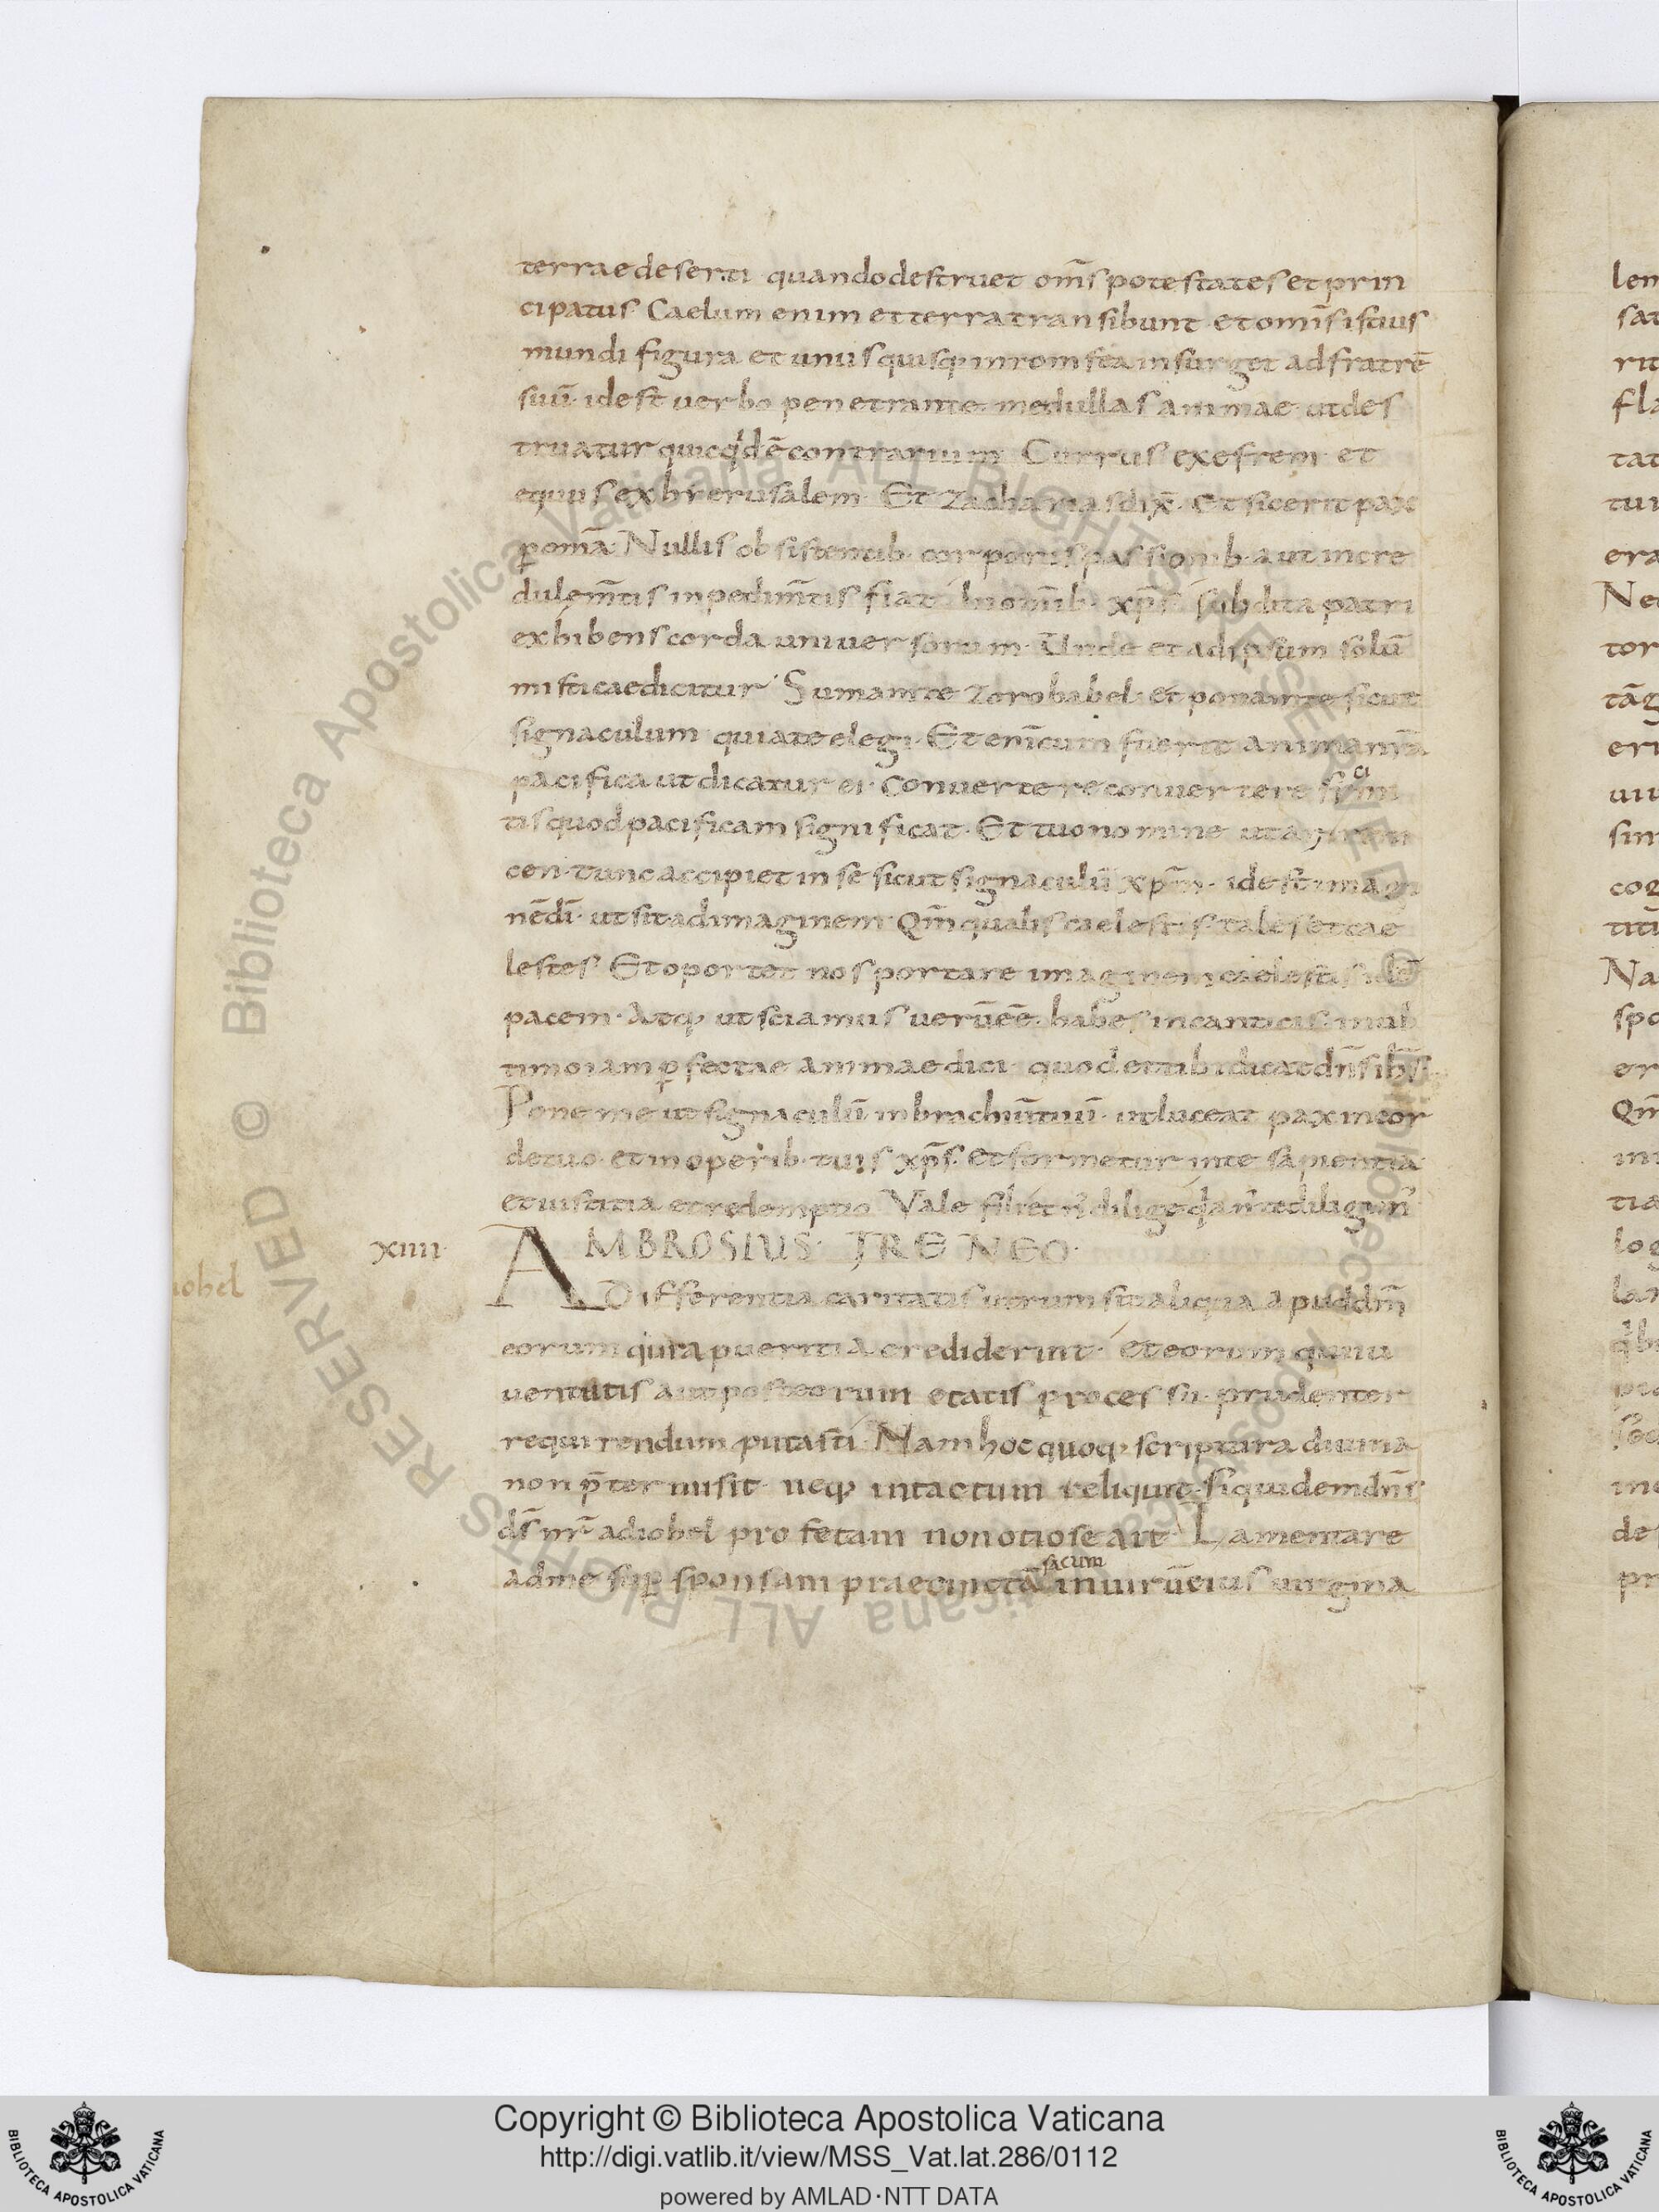 terrae deserti quando destruet om̄s potestates et prin
cipatus. Caelum enim et terra transibunt et om̄s istius
mundi figura et unusquisq; in romfea insurget ad fratrē
suū. id est verbo penetrante medullas animae. ut des
truatur quicqd ē contrarium Currus ex efrem et
equus ex hierusalem. Et Zacharias dix̄. Et sic erit pax
p om̄a. Nullis obsistentib. corporis passionib. aut incre
dulem̄tis inpedim̄tis fiat in om̄ib. xp̄s subdita patri
exhibens corda universorum. Unde et ad ipsum solū
misticae dicitur Sumam te Zorobabel. et ponam te sicut
signaculum quia te elegi. Et enī cum fuerit anima nr̄a
pacifica ut dicatur ei. Convertere convertere
tis quod pacificam significat. Et tuo nomine
cen. tunc accipiet in se sicut signaculū xp̄m. id est imagi
nē dī. ut sit ad imaginem. Qm̄ qualis caelestis tales et cae
lestes. Et oportet nos portare imaginem caelestis id ē
pacem. Atq; ut sciamus verū eē. habes in canticis. in ul
timo iam pfectae animae dici quod et tibi dicat dn̄s ihs̄.
Pone me ut signaculū in brachiū tuū. ut luceat pax in cor
de tuo. et in operib. tuis xp̄s. et formetur in te sapientia
et iustitia et redemptio Vale fili et n̄ dilige qa n̄ te diligim̄
xiiii. AMBROSIUS IRENEO.
iobel
Differentia caritatis utrum sit aliqua apud dm̄
eorum qui a pueritia crediderint. et eorum qui iu
ventutis aut posteorum etatis processu. prudenter
requirendum putasti Nam hoc quoq; scriptura divina
non p̄termisit. neq; intactum reliquit. siquidem dn̄s
ds̄ nr̄ ad iobel profetam non otiose ait Lamentare
ad me sup sponsam praecinctā sacum in virū eius virgina
Copyright © Biblioteca Apostolica Vaticana
http://digi.vatlib.it/view/MSS_Vat.lat.286/0112
powered by AMLAD·NTT DATA
BIBLIOTECA APOSTOLICA VATICANA
BIBLIOTECA APOSTOLICA VATICANA